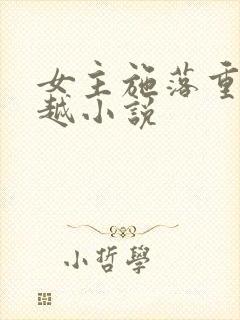 女主施落重
越小説
小哲學